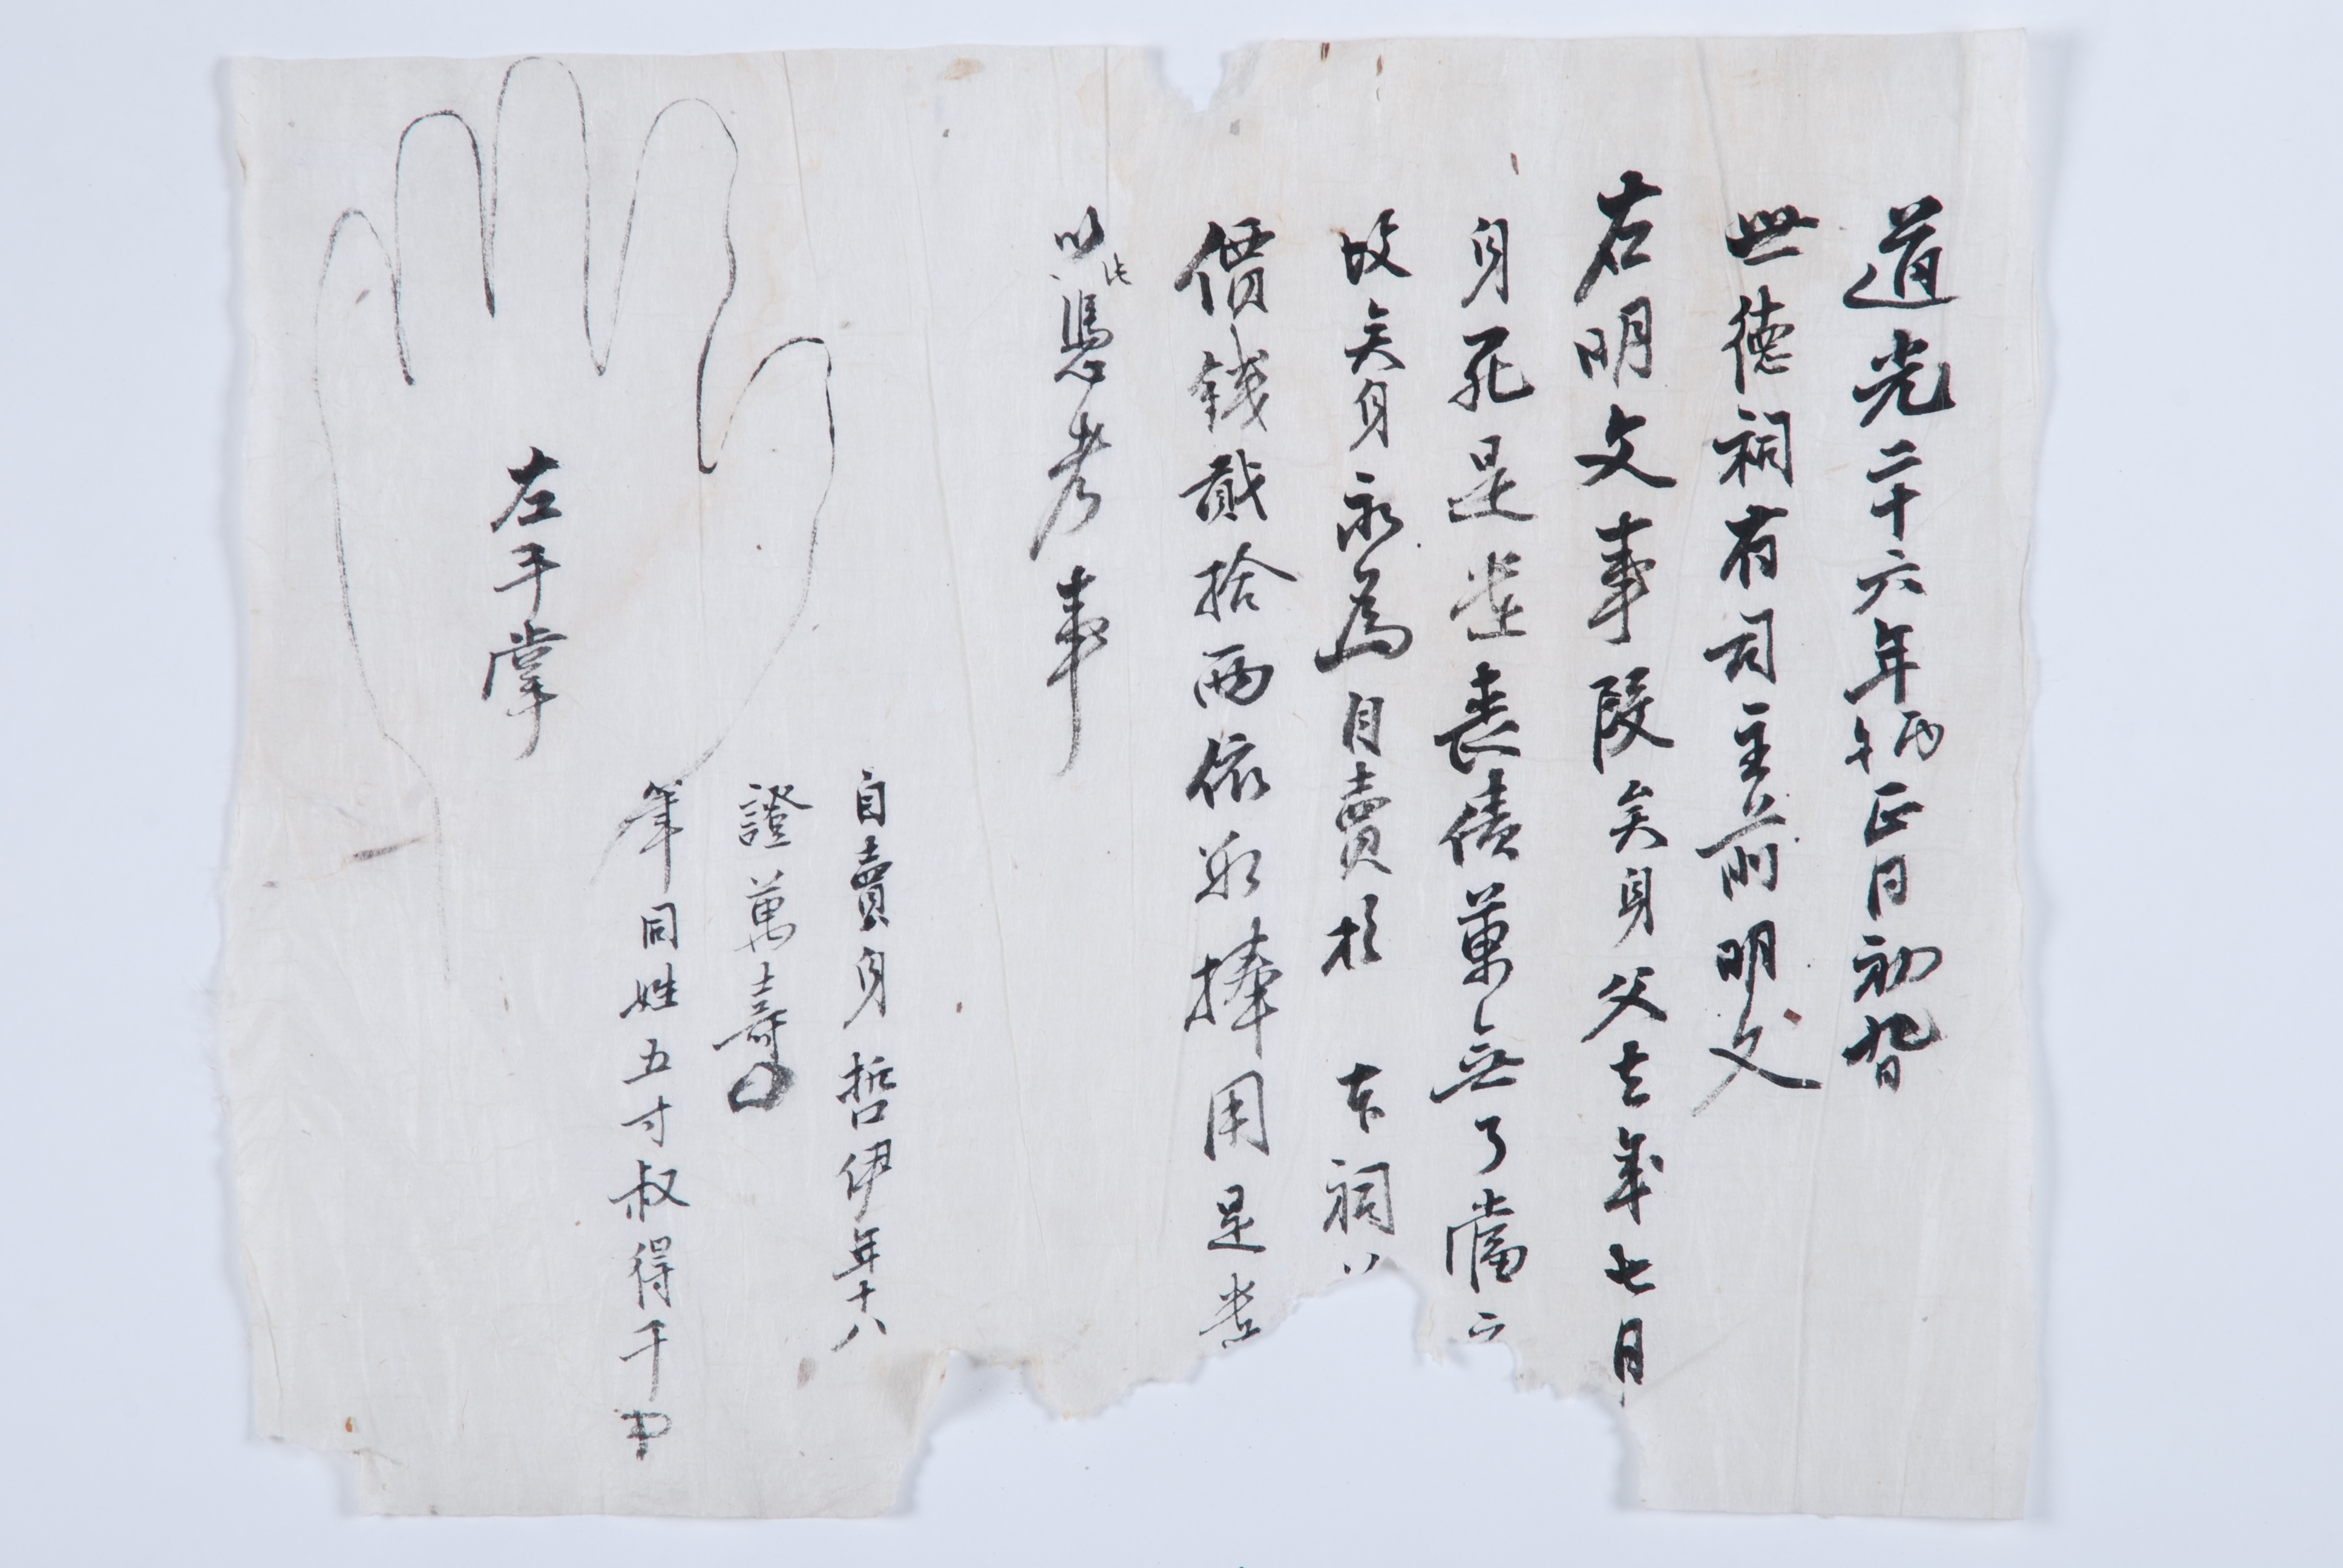 道光二十六年丙午正月初九日
世德祠有司主前明文
右明文事段矣身父去年七月
身死是遣喪債萬無了當
故矣身永為自賣於 本祠
價錢貳拾兩依數捧用是遣
以此憑考事
自賣身哲伊年十八
證萬壽
筆同姓五寸叔得千
左手掌